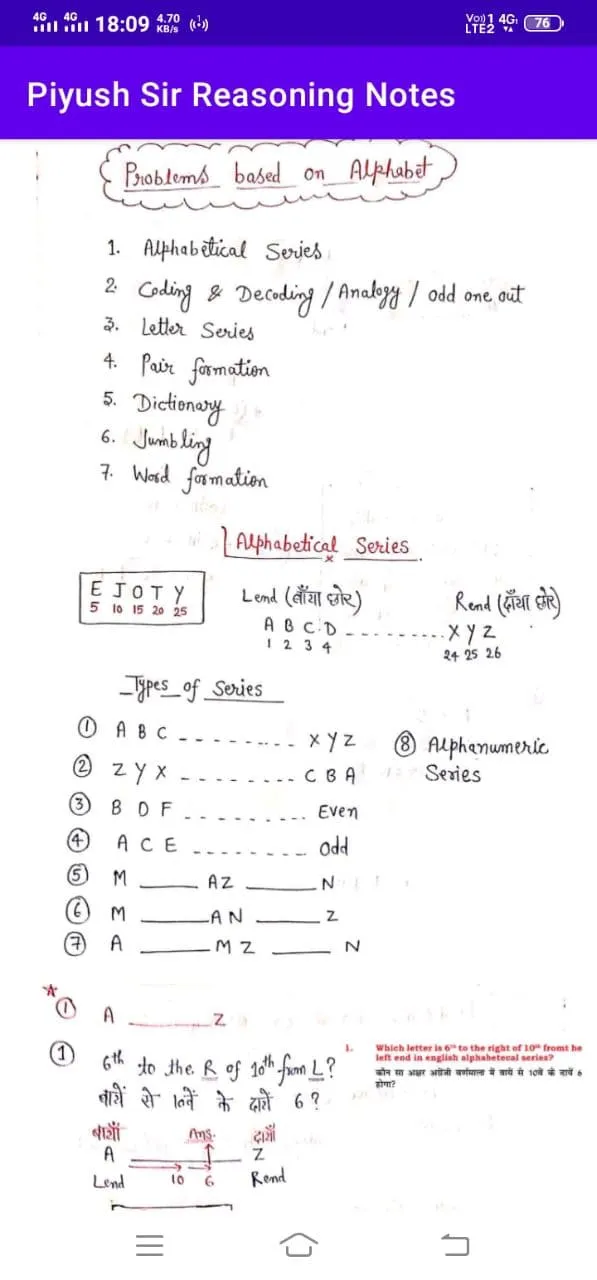 4G 4G 18:09 4.70 KB/s
Vo)) 1 4G LTE2 76
Piyush Sir Reasoning Notes
Problems based on Alphabet
1. Alphabetical Series
2. Coding & Decoding / Analogy / odd one out
3. Letter Series
4. Pair formation
5. Dictionary
6. Jumbling
7. Word formation
Alphabetical Series
E J O T Y
5 10 15 20 25
Lend (बाँया छोर)
A B C D
1 2 3 4
Rend (दाँया छोर)
X Y Z
24 25 26
Types of Series
① A B C - - - - - - - - - X Y Z
② Z Y X - - - - - - - - C B A
③ B D F - - - - - - - - - Even
④ A C E - - - - - - - - odd
⑤ M ____ AZ ____ N
⑥ M ____ AN ____ Z
⑦ A ____ MZ ____ N
⑧ Alphanumeric
Series
① A ____ Z
① 6th to the R of 10th from L?
बायें से 10वें के दायें 6?
बायाँ Ans. दायाँ
A Z
Lend 10 6 Rend
1. Which letter is 6th to the right of 10th fromt he
left end in english alphabetecal series?
कौन सा अक्षर अंग्रेजी वर्णमाला में बायें से 10वें के दायें 6
होगा?